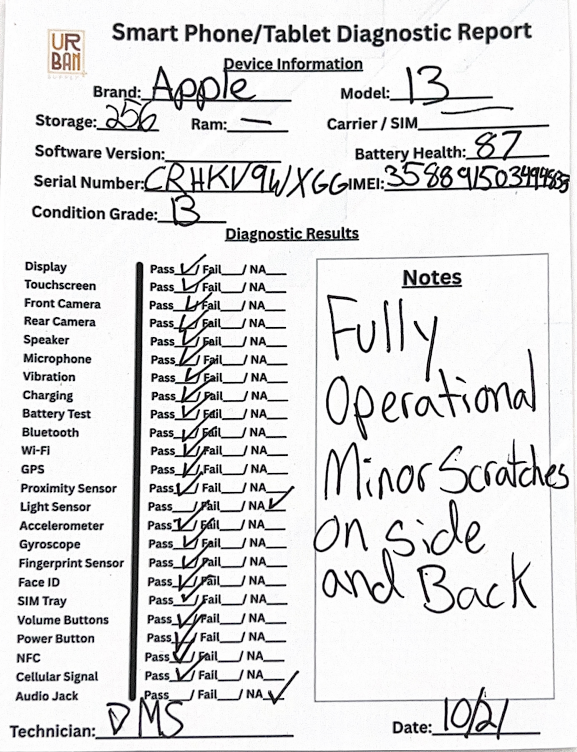 URBAN SUPPLY
Smart Phone/Tablet Diagnostic Report
Device Information
Brand: Apple Model: 13
Storage: 256 Ram: — Carrier / SIM —
Software Version: Battery Health: 87
Serial Number: CRHKV9WXGG IMEI: 358891503494835
Condition Grade: B
Diagnostic Results
Display Pass ✓ / Fail / NA
Touchscreen Pass ✓ / Fail / NA
Front Camera Pass ✓ / Fail / NA
Rear Camera Pass ✓ / Fail / NA
Speaker Pass ✓ / Fail / NA
Microphone Pass ✓ / Fail / NA
Vibration Pass ✓ / Fail / NA
Charging Pass ✓ / Fail / NA
Battery Test Pass ✓ / Fail / NA
Bluetooth Pass ✓ / Fail / NA
Wi-Fi Pass ✓ / Fail / NA
GPS Pass ✓ / Fail / NA
Proximity Sensor Pass ✓ / Fail / NA
Light Sensor Pass / Fail / NA ✓
Accelerometer Pass ✓ / Fail / NA
Gyroscope Pass ✓ / Fail / NA
Fingerprint Sensor Pass ✓ / Fail / NA
Face ID Pass ✓ / Fail / NA
SIM Tray Pass ✓ / Fail / NA
Volume Buttons Pass ✓ / Fail / NA
Power Button Pass ✓ / Fail / NA
NFC Pass ✓ / Fail / NA
Cellular Signal Pass ✓ / Fail / NA
Audio Jack Pass / Fail / NA ✓
Notes
Fully
Operational
Minor Scratches
on side
and Back
Technician: DMS Date: 10/21